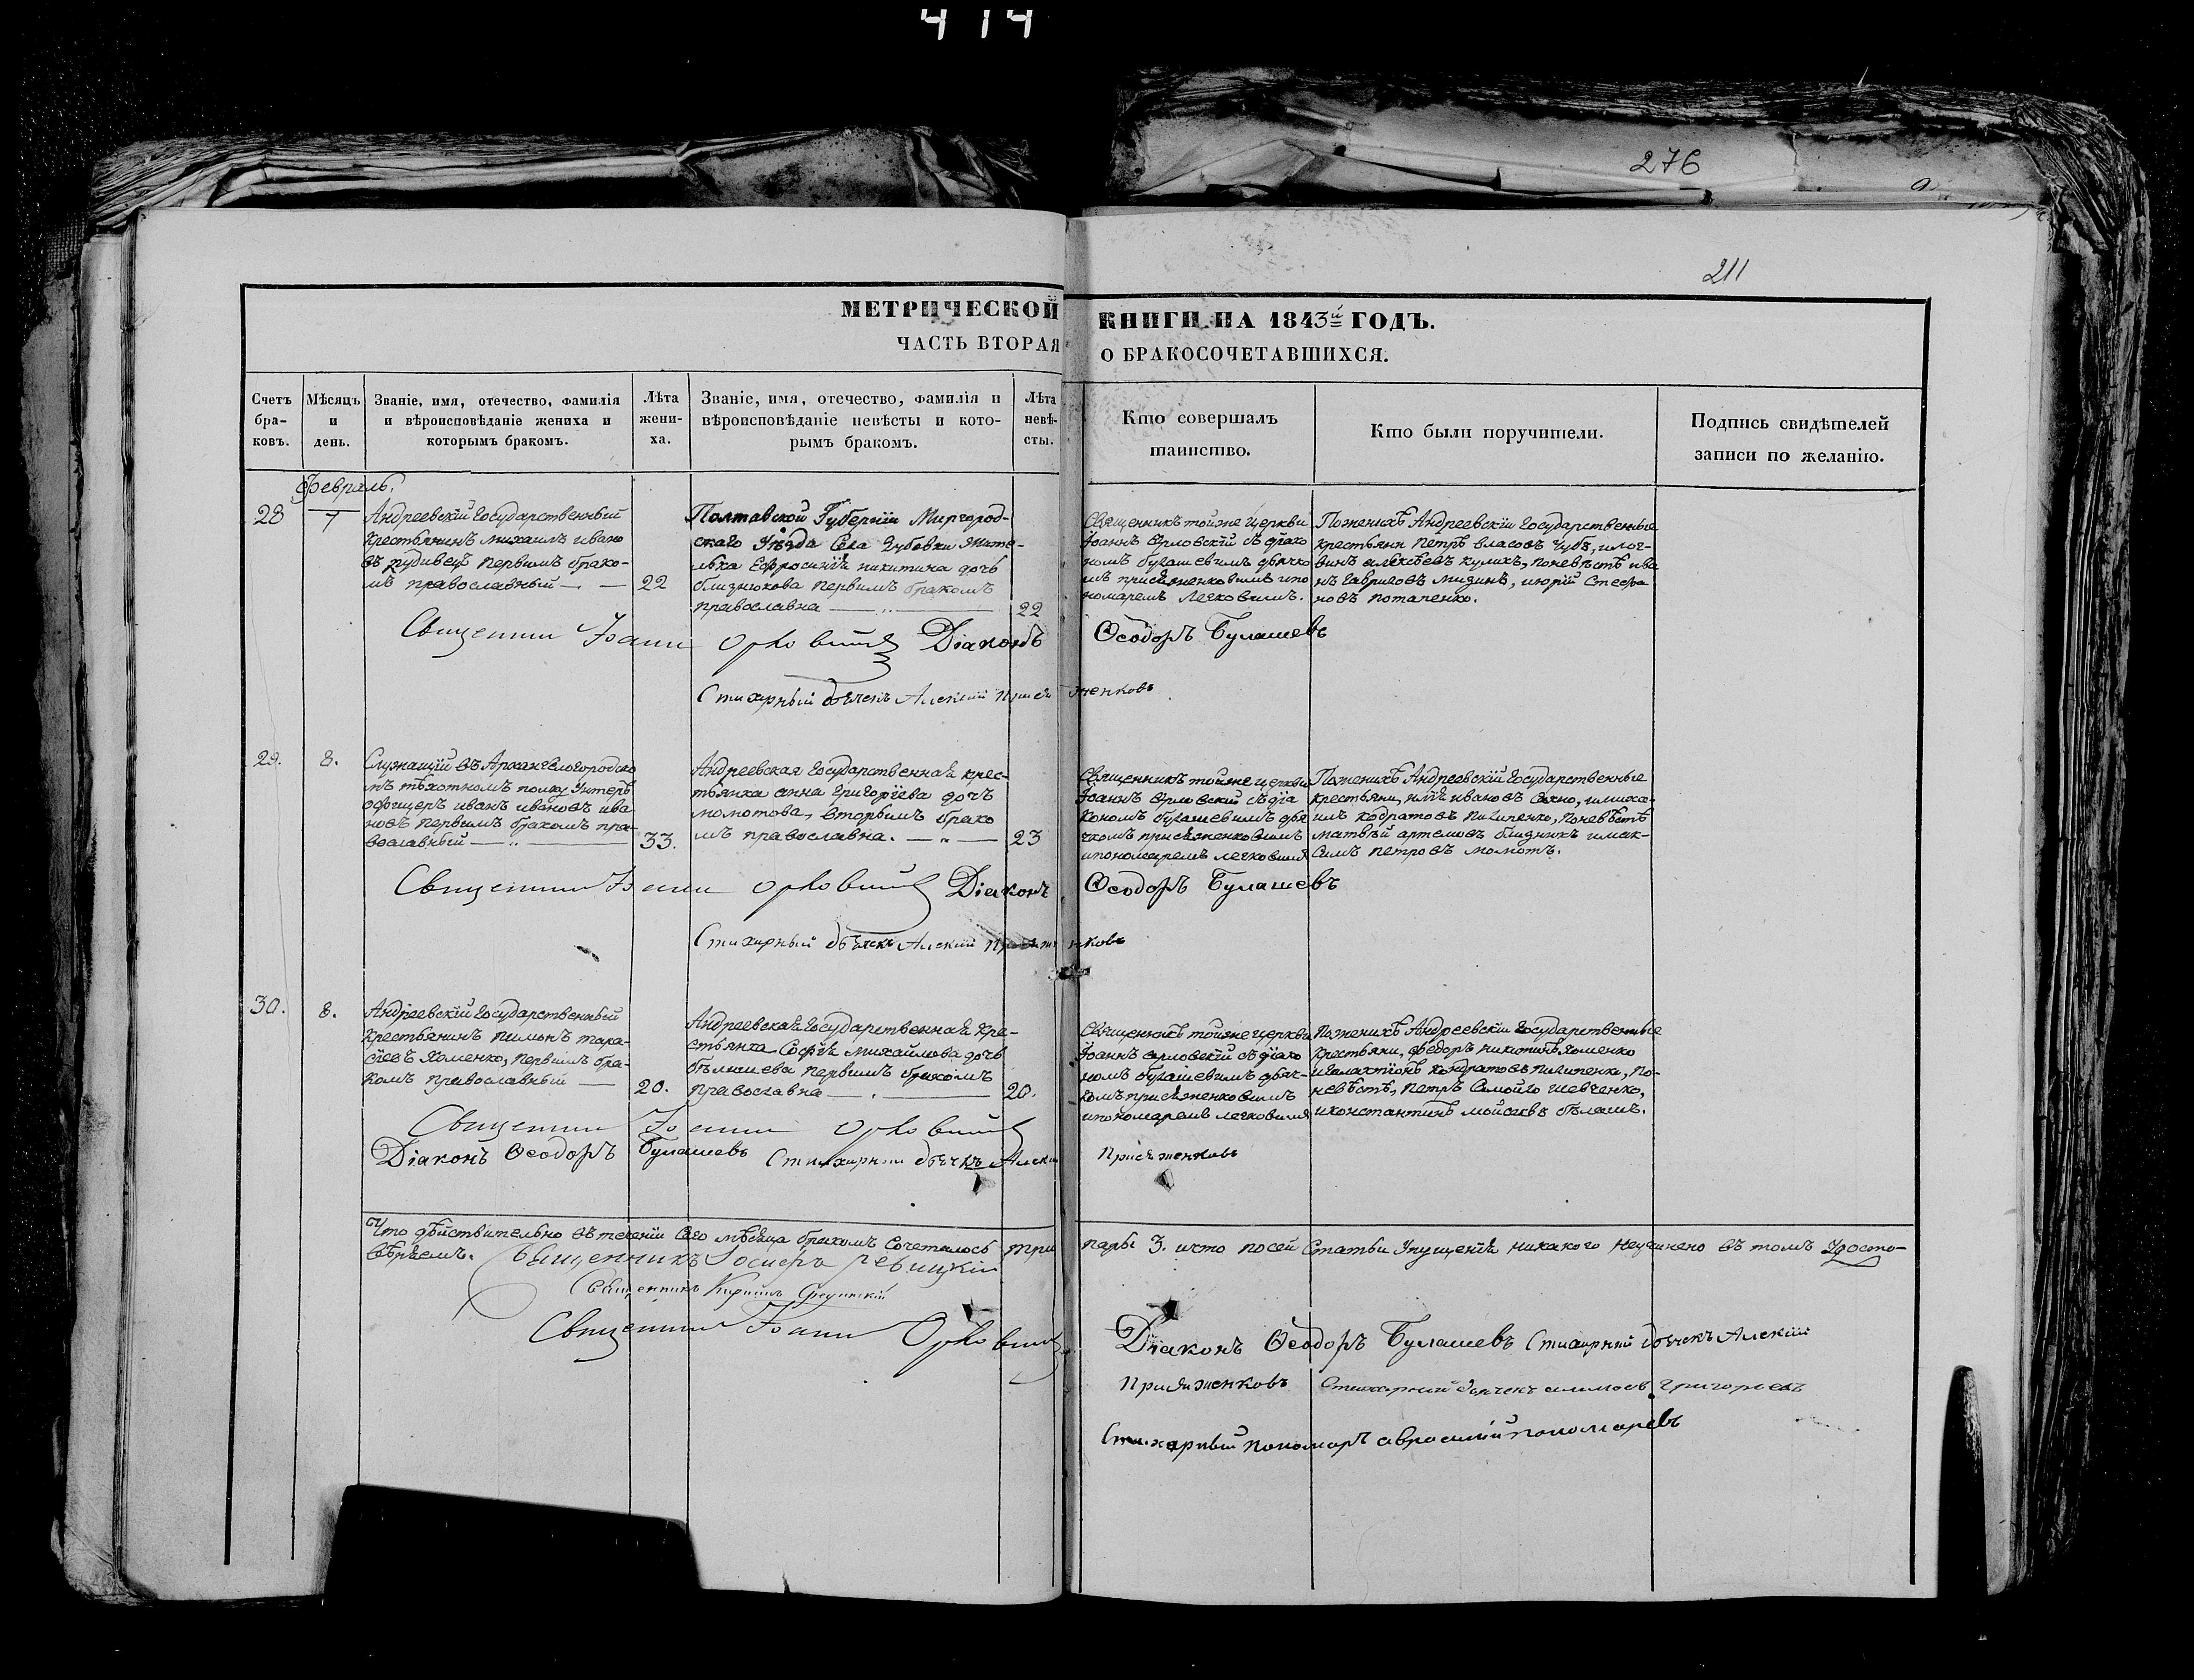 414
276
211
МЕТРИЧЕСКОЙ КНИГИ НА 1843й ГОДЪ.
ЧАСТЬ ВТОРАЯ О БРАКОСОЧЕТАВШИХСЯ.
Счетъ бра-ковъ.
Мѣсяцъ и день.
Званіе, имя, отечество, фамилія и вѣроисповѣданіе жениха и которымъ бракомъ.
Лѣта жени-ха.
Званіе, имя, отечество, фамилія и вѣроисповѣданіе невѣсты и кото-рымъ бракомъ.
Лѣта невѣ-сты.
Кто совершалъ таинство.
Кто были поручители.
Подпись свидѣтелей записи по желанію.
Февраль.
28
7
Андреевскій государственный
крестьянинъ михаилъ ивано
въ рудивец первымъ брако-
мъ православный
22
Полтавской Губерніи Миргород-
скаго Уѣзда Села Зубовки жите-
лька Ефросинія никитина дочь
близнюкова первымъ бракомъ
православна
22
Священникъ тойже церкви
Іоаннъ Орловскій съ діако
номъ булашевимъ дьячко
мъ присяженковимъ ипо
номаремъ легковимъ.
Поженихѣ Андреевскіи государственные
крестьяни Петръ власовъ чубъ, илог-
винъ алексѣевъ куликъ, поневѣстѣ ива
нъ гавриловъ мизинъ, июрій Стефа
новъ потапенко.
Священник Іоанн Орловский Діаконъ Ѳеодоръ Булашевъ
Стихарный дьячекъ Алексій Присяженковъ
29.
8.
Служащій въ Архангелогородско
мъ пѣхотномъ полку Унтеръ
офицеръ иванъ ивановъ ива
новъ первымъ бракомъ пра-
вославный
33.
Андреевская государственная крес-
тьянка анна григоріева дочь
момотова, вторымъ брако
мъ православна.
23
Священникъ тойже церкви
Іоаннъ Орловский съ діа
кономъ булашевимъ дья
чкомъ присяженковимъ
ипономаремъ легковимъ
Поженихѣ Андреевскій государственные
крестьяни, илія ивановъ сахно, имиха-
илъ кодратовъ пилипенко, поневѣстѣ
матвѣй артемовъ блидникъ имак-
симъ петровъ момотъ.
Священник Іоанн Орловский Діаконъ Ѳеодоръ Булашевъ
Стихарный дьячекъ Алексій Присяженковъ
30.
8.
Андреевскій государственный
крестьянинъ пименъ тара-
сіевъ Хоменко, первымъ бра-
комъ православный
20.
Андреевская государственная кре-
стьянка Софія михайлова дочь
бѣлашева первымъ бракомъ
православна
20.
Священникъ тойже церкви
Іоаннъ орловскій съ діако
номъ булашевимъ дьяч-
комъ присяженковимъ
ипономаремъ легковимъ
Поженихѣ Андреевскіи государственные
крестьяни, федоръ никитинъ хоменко
игалактіонъ кондратовъ пилипенко, по-
невѣстѣ, петръ Самойло шевченко,
иконстантинъ мойсеевъ бѣлашъ.
Священник Іоанн Орловский
Діаконъ Ѳеодоръ Булашевъ Стихарный дьячкъ Алексій Присяженковъ
Что дѣйствительно въ теченіи Сего мѣсяца бракомъ Сочеталось три пары 3. ичто посей Статьи Упущенія никакого неучинено въ томъ Удосто-
вѣряемъ. Священникъ Іосифъ Ревицкій
Священникъ Кириллъ
Священник Іоанн Орловский
Діаконъ Ѳеодоръ Булашевъ Стихарный дьячекъ Алексій
Присяженковъ Стихарный дьячекъ Григорьевъ
Стихарный пономарь пономаревъ